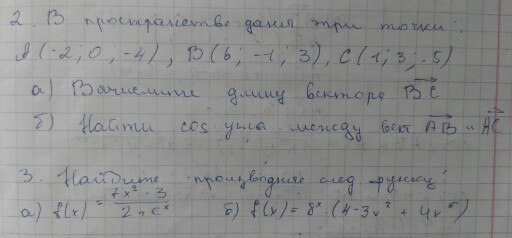 2. В пространстве даны три точки:
A(-2; 0; -4), B(6; -1; 3), C(1; 3; -5)
а) Вычислите длину вектора BC
б) Найти cos угла между вект AB и AC
3. Найдите производные след. функц:
а) f(x) = (7x² - 3)/(2 + e^x) б) f(x) = 8^x · (4 - 3x² + 4x⁵)